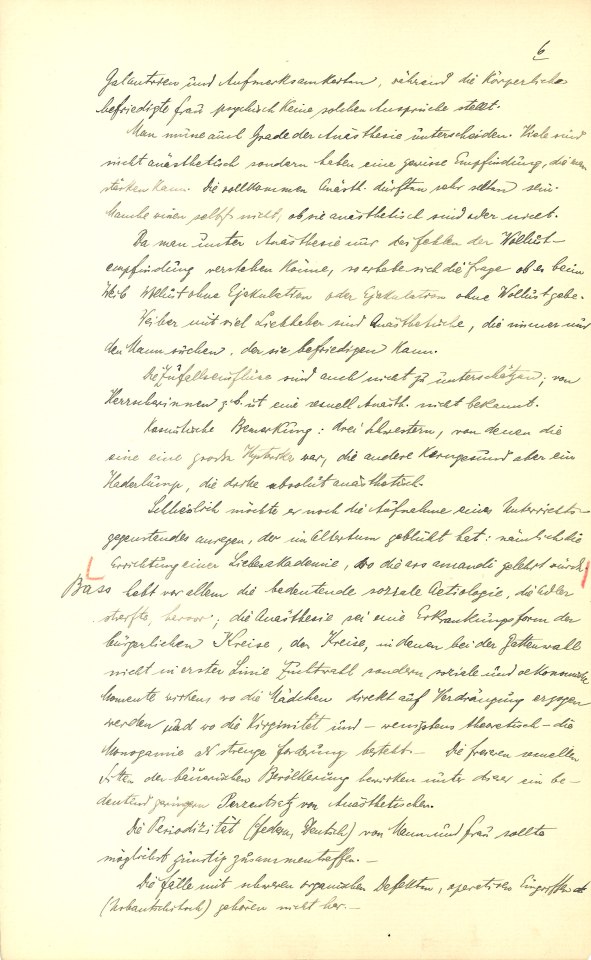 6
Galanterien und Aufmerksamkeiten, während die Körperliche
befriedigte Frau psychisch keine solchen Ansprüche stellt.
Man müsse auch Grade der Anästhesie unterscheiden. Viele sind
nicht anästhetisch sondern haben eine gewisse Empfindung, die man
stärken kann. Die vollkommen Anästh. dürften sehr selten sein.
Manche wissen selbst nicht, ob sie anästhetisch sind oder nicht.
Da man unter Anästhesie nur das Fehlen der Wollust-
empfindung verstehen könne, so erhebe sich die Frage ob es beim
Weib Wollust ohne Ejakulation oder Ejakulation ohne Wollust gebe.
Weiber mit viel Liebhaber sind Anästhetische, die immer nur
den Mann suchen, der sie befriedigen kann.
Die Zufallseinflüsse sind auch nicht zu unterschätzen; von
Herrscherinnen z. b. ist eine sexuell Anästh. nicht bekannt.
Kasuistische Bemerkung: drei Schwestern, von denen die
eine eine große Hysterika war, die andere Kerngesund aber ein
Haderlump, die dritte absolut anästhetisch.
Schliesslich möchte er noch die Aufnahme eines Unterrichts-
gegenstandes anregen, der im Altertum geblüht hat: nämlich die
Errichtung einer Liebesakademie, wo die ars amandi gelehrt würde.
Bass hebt vor allem die bedeutende soziale Aetiologie, die Adler
streifte, hervor; die Anästhesie sei eine Erkrankungsform der
bürgerlichen Kreise, der Kreise, in denen bei der Gattenwahl
nicht in erster Linie Zuchtwahl sondern soziale und oekonomische
Momente wirken, wo die Mädchen direkt auf Verdrängung erzogen
werden und wo die Virginität und – wenigstens theoretisch – die
Monogamie als strenge Forderung besteht. – Die freieren sexuellen
Sitten der bäuerischen Bevölkerung bewirken unter dieser ein be-
deutend geringern Perzentsatz von Anästhetischen.
Die Periodizität (Federn, Deutsch) von Mann und Frau sollte
möglichst günstig zusammentreffen. –
Die Fälle mit schweren organischen Defekten, operativen Eingriffen etc
(Urbantschitsch) gehören nicht her. –